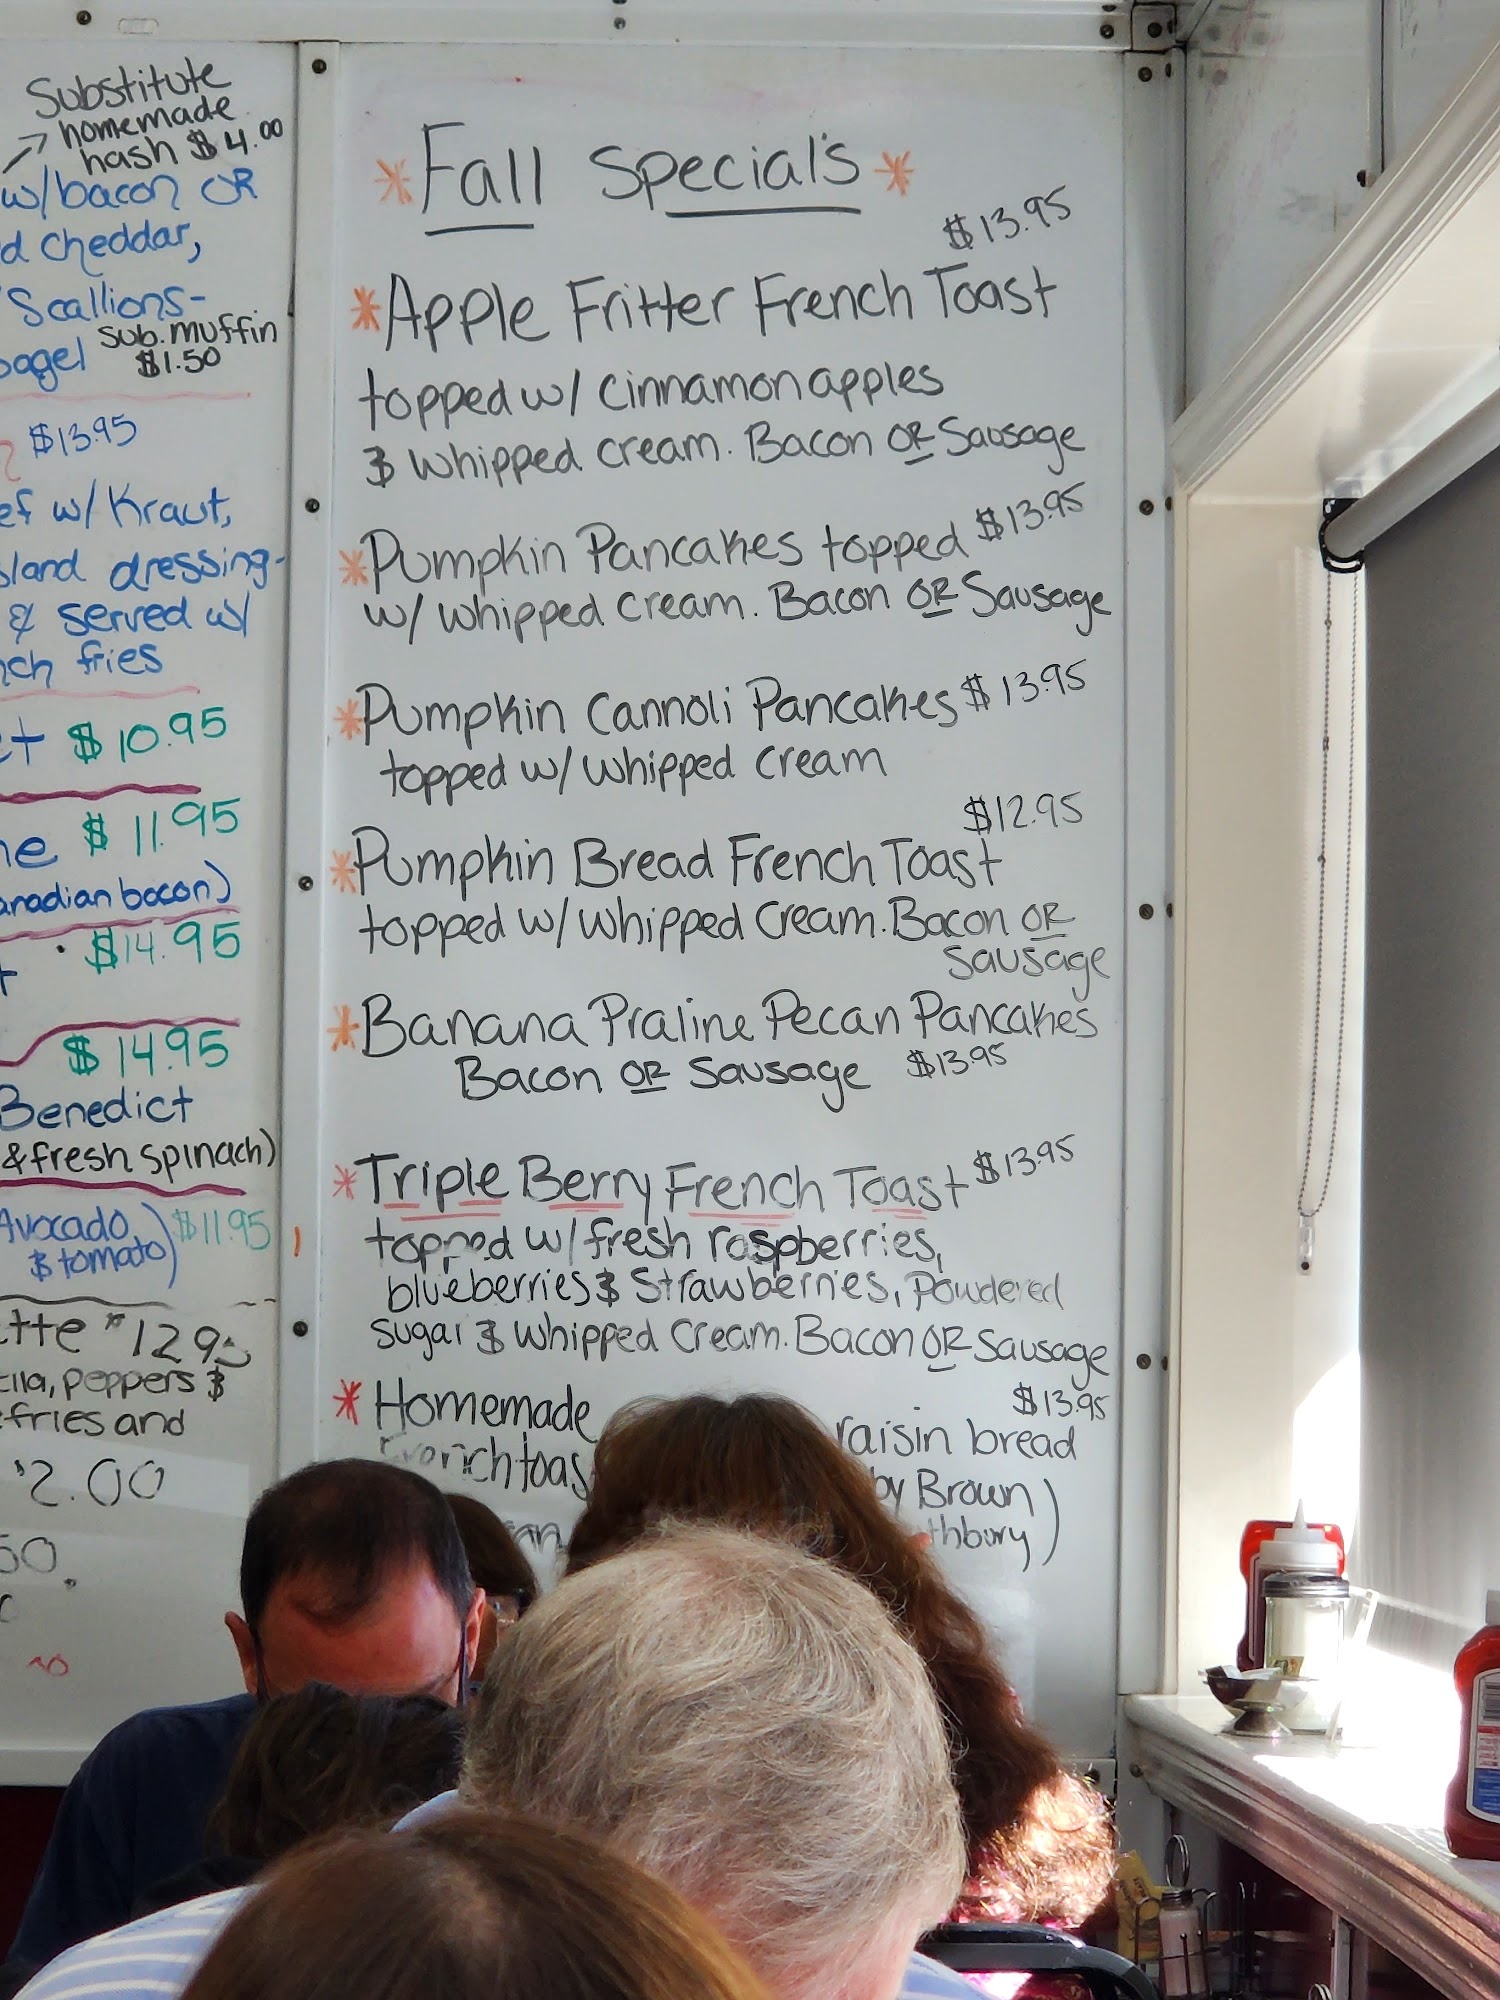 Substitute
homemade
hash $4.00
w/bacon OR
d cheddar,
Scallions-
bagel sub. muffin
$1.50
$13.95
ef w/ Kraut,
sland dressing-
& served w/
nch fries
et $10.95
ne $11.95
anadian bacon)
$14.95
$14.95
Benedict
& fresh spinach)
Avocado $11.95
& tomato)
tte $12.95
illa, peppers &
fries and
2.00
50
* Fall Special's *
$13.95
* Apple Fritter French Toast
topped w/ cinnamon apples
& whipped cream. Bacon OR Sausage
* Pumpkin Pancakes topped $13.95
w/ whipped cream. Bacon OR Sausage
* Pumpkin Cannoli Pancakes $13.95
topped w/ whipped cream
$12.95
* Pumpkin Bread French Toast
topped w/ whipped cream. Bacon OR
Sausage
* Banana Praline Pecan Pancakes
Bacon OR Sausage $13.95
* Triple Berry French Toast $13.95
topped w/ fresh raspberries,
blueberries & Strawberries, Powdered
sugar & whipped cream. Bacon OR Sausage
$13.95
* Homemade raisin bread
Frenchtoas by Brown
thbury)